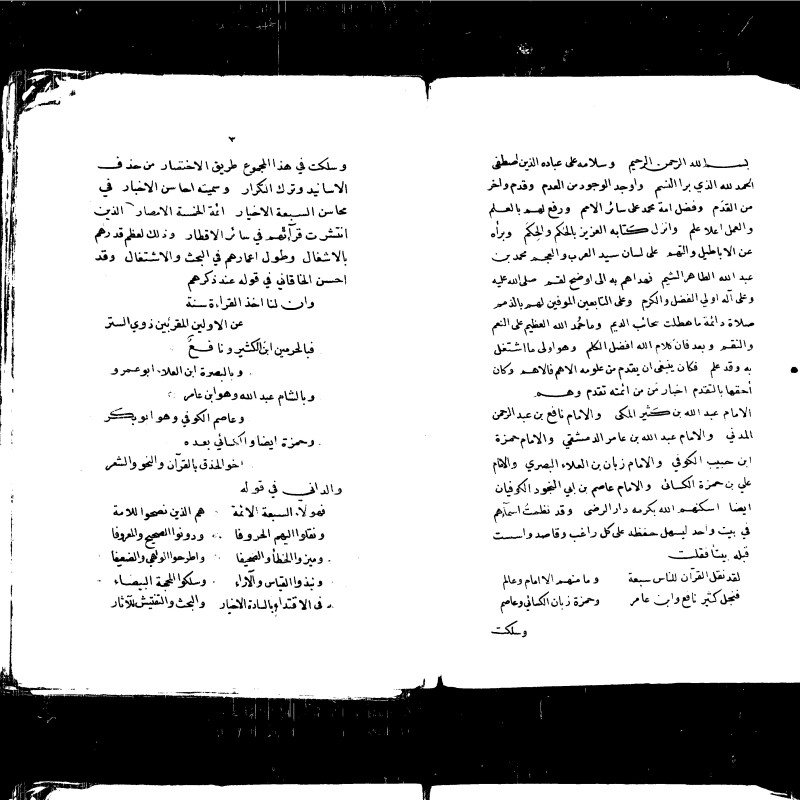 بسم الله الرحمن الرحيم وسلامه على عباده الذين اصطفى
الحمد لله الذي برا النسم واوجد الوجود من العدم وقدم واخر
من القدم وفضل امة محمد على سائر الامم ورفع لهم بالعلم
والعمل اعلا علم وانزل كتابه العزيز بالحكم والحكم وبرأه
عن الاباطيل والتهم على لسان سيد العرب والعجم محمد بن
عبد الله الطاهر الشيم فهداهم به الى اوضح لقم صلى الله عليه
وعلى آله اولي الفضل والكرم وعلى التابعين الموفين لهم بالذمم
صلاة دائمة ما هطلت سحائب الديم وما حمد الله العظيم على النعم
والنقم وبعد فان كلام الله افضل الكلم وهو اولى ما اشتغل
به وقد علم فكان ينبغي ان يقدم من علومه الاهم فالاهم وكان
أحقها بالتقدم اخبار من من ائمته تقدم وهم
الامام عبد الله بن كثير المكي والامام نافع بن عبد الرحمن
المدني والامام عبد الله بن عامر الدمشقي والامام حمزة
ابن حبيب الكوفي والامام زبان بن العلاء البصري والامام
علي بن حمزة الكسائي والامام عاصم بن ابي النجود الكوفيان
ايضا اسكنهم الله بكرمه دار الرضى وقد نظمت اسماءهم
في بيت واحد ليسهل حفظه على كل راغب وقاصد واسست
قبله بيتا فقلت
لقد نقل القرآن للناس سبعة وما منهم الا امام وعالم
فنجل كثير نافع وابن عامر وحمزة زبان الكسائي وعاصم
وسلكت
٢
وسلكت في هذا المجموع طريق الاختصار من حذف
الاسانيد وترك التكرار وسميته احاسن الاخبار في
محاسن السبعة الاخيار ائمة الخمسة الامصار الذين
انتشرت قرآئتهم في سائر الاقطار وذلك لعظم قدرهم
بالاشغال وطول اعمارهم في البحث والاشتغال وقد
احسن الخاقاني في قوله عند ذكرهم
وان لنا اخذ القراءة سنة
عن الاولين المقرئين ذوي الستر
فبالحرمين ابن الكثير ونافع
وبالبصرة ابن العلاء ابو عمرو
وبالشام عبد الله وهو ابن عامر
وعاصم الكوفي وهو ابو بكر
وحمزة ايضا والكسائي بعده
اخو الحذق بالقرآن والنحو والشعر
والداني في قوله
فهولاء السبعة الائمة هم الذين نصحوا للامة
ونقلوا اليهم الحروفا ودونوا الصحيح والمعروفا
وميزوا الخطأ والتصحيفا واطرحوا الواهي والضعيفا
ونبذوا القياس والآراء وسلكوا المحجة البيضاء
في الاقتداء بالسادة الاخيار والبحث والتفتيش للآثار